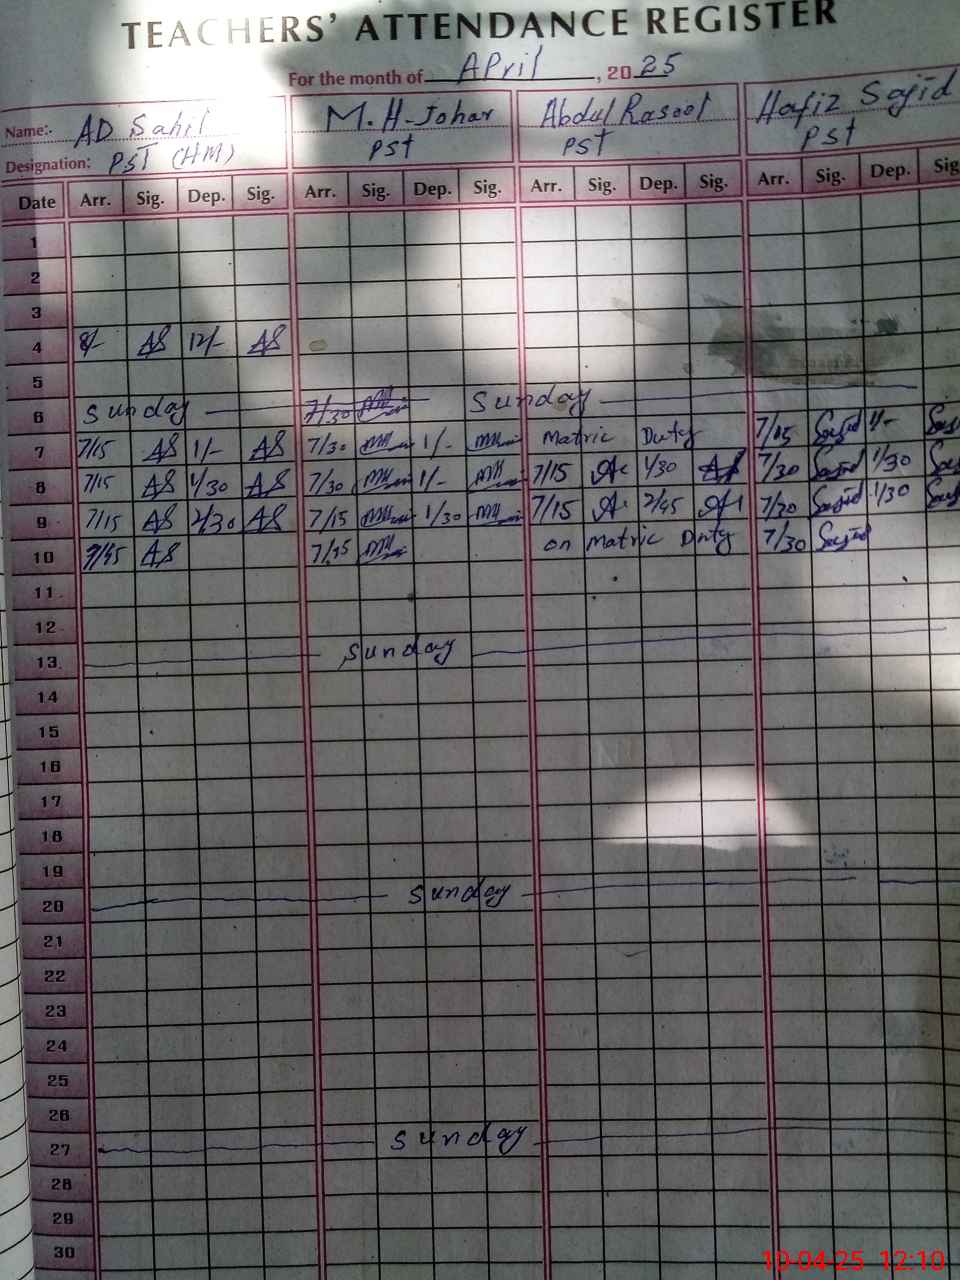 TEACHERS' ATTENDANCE REGISTER
For the month of April, 2025
Name:- AD Sahil M.H-Johar Abdul Rasool Hafiz Sajid
Designation: PST (HM) PST PST PST
Date Arr. Sig. Dep. Sig. Arr. Sig. Dep. Sig. Arr. Sig. Dep. Sig. Arr. Sig. Dep. Sig
1
2
3
4 8/- AS 12/- AS
5
6 Sunday 7/30 Sunday
7 7/15 AS 1/- AS 7/30 1/- Matric Duty 7/15 Sajid 1/-
8 7/15 AS 1/30 AS 7/30 1/- 7/15 1/30 7/30 Sajid 1/30
9 7/15 AS 2/30 AS 7/15 1/30 7/15 2/45 7/30 Sajid 1/30
10 AS on Matric Duty 7/30 Sajid
11
12
13 Sunday
14
15
16
17
18
19
20 Sunday
21
22
23
24
25
26
27 Sunday
28
29
30
10-04-25 12:10